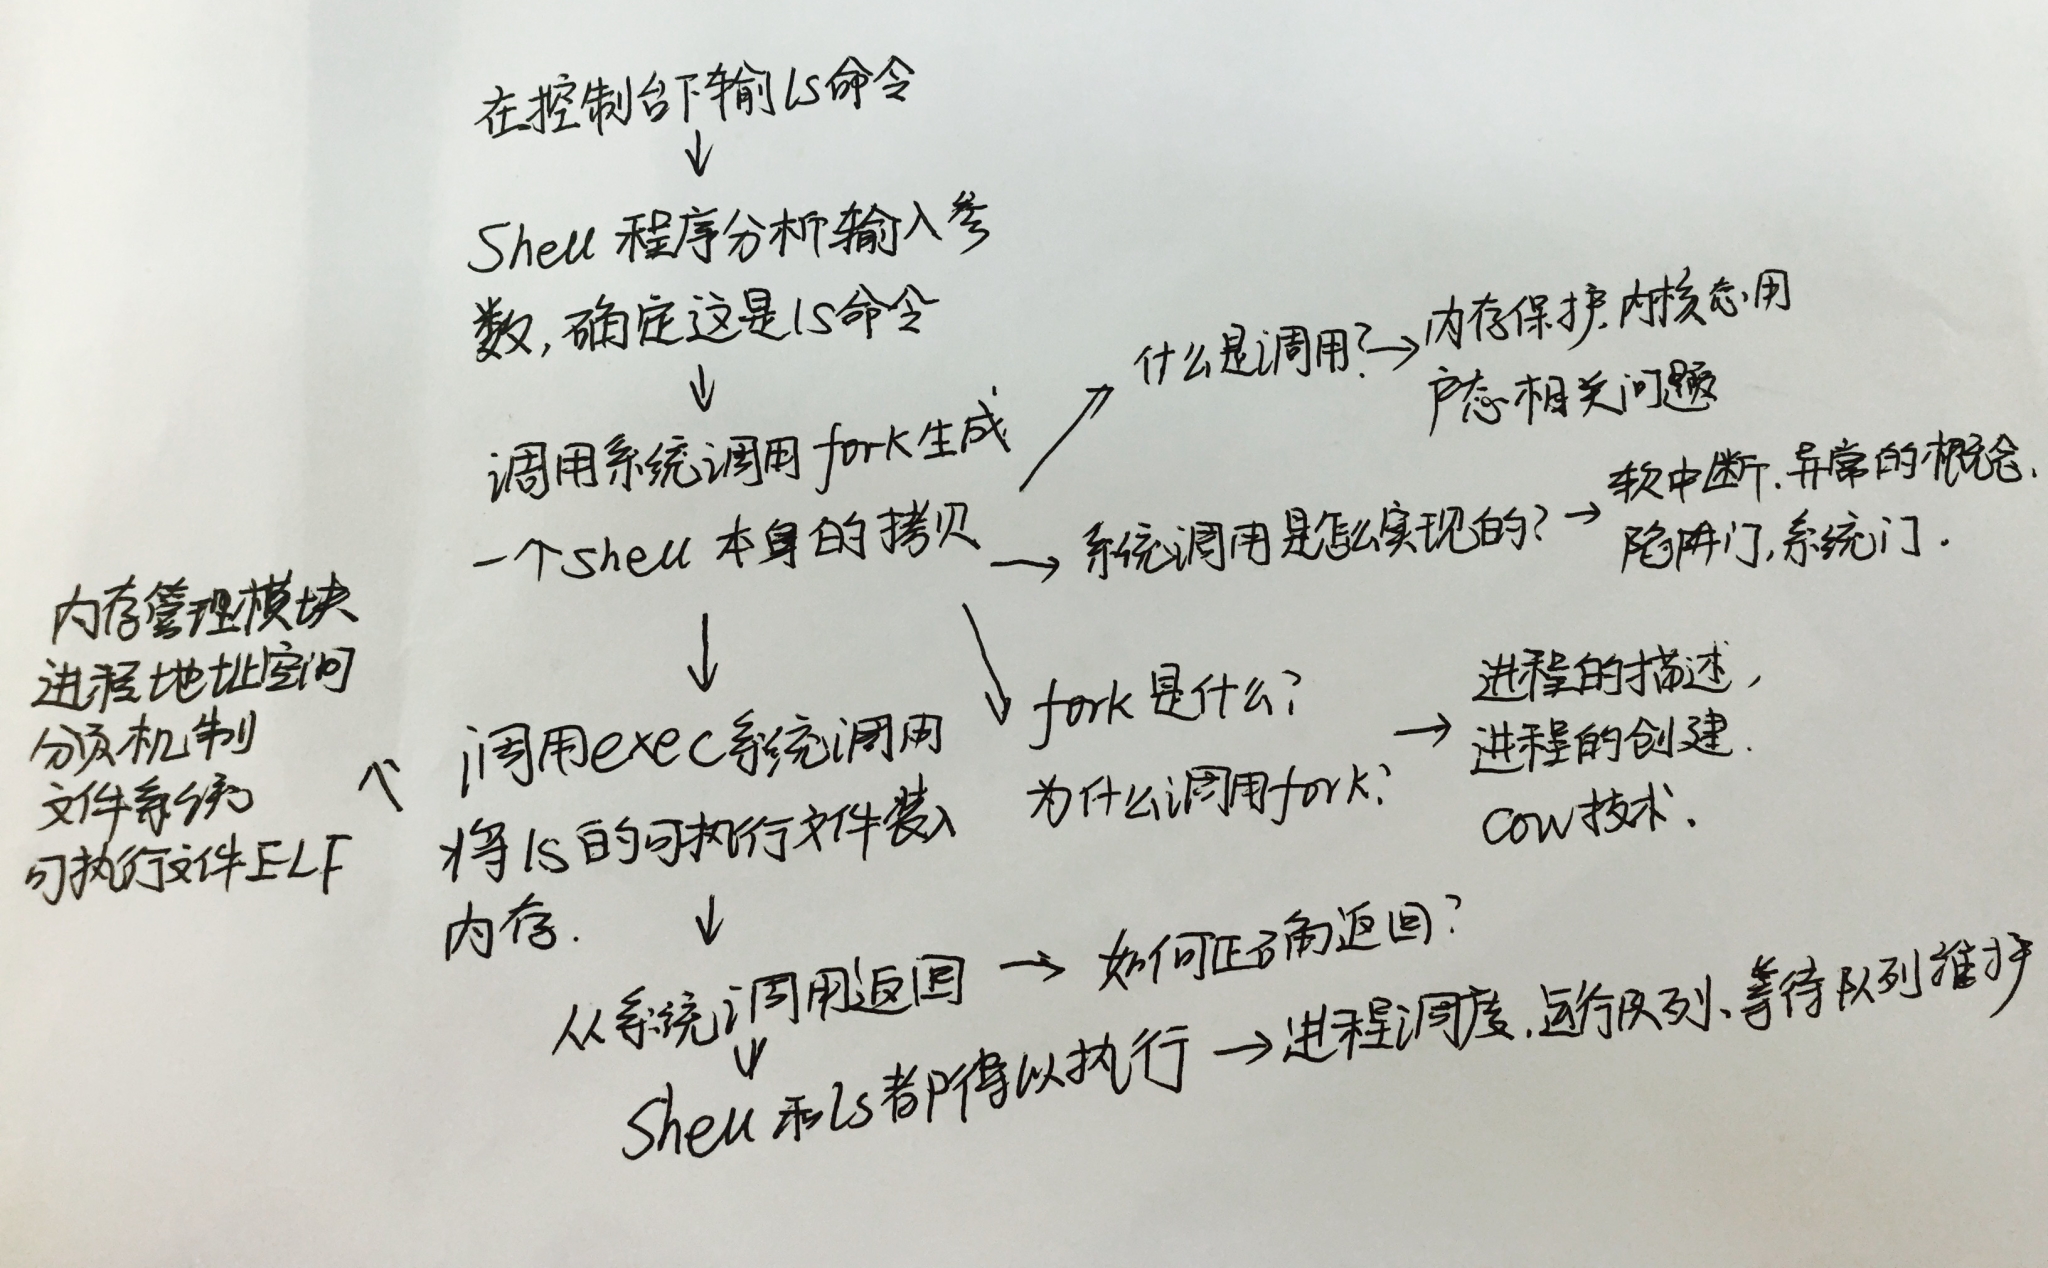 在控制台下输ls命令
Shell 程序分析输入参
数,确定这是ls命令
调用系统调用fork生成
一个shell 本身的拷贝
什么是调用?
内存保护.内核态.用
户态相关问题
系统调用是怎么实现的?
软中断.异常的概念.
陷阱门,系统门.
fork 是什么?
为什么调用fork?
进程的描述,
进程的创建.
COW技术.
调用exec系统调用
将ls的可执行文件装入
内存.
内存管理模块
进程地址空间
分页机制
文件系统
可执行文件ELF
从系统调用返回
如何正确返回?
Shell 和ls都得以执行
进程调度.运行队列、等待队列维护